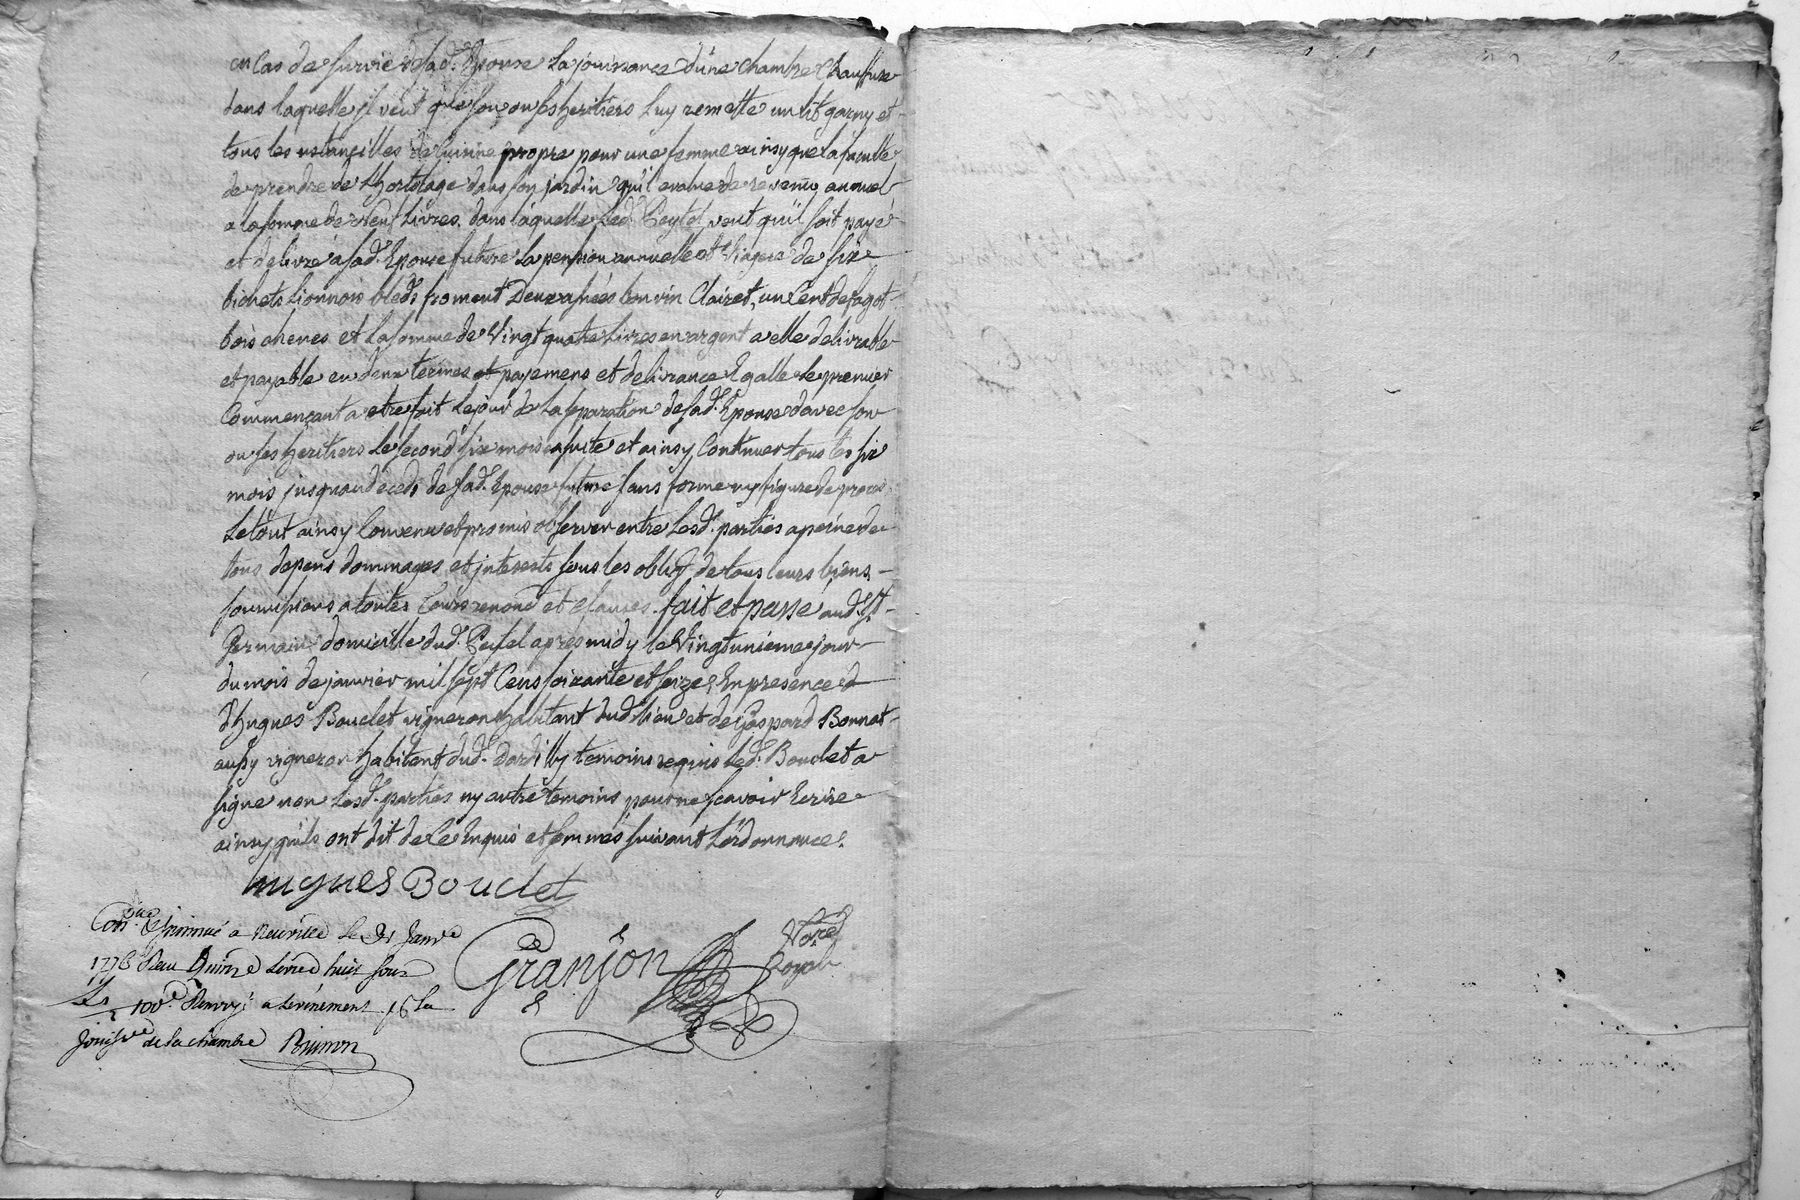 en Cas de survie de sad. Epouse La jouissance d'une chambre Chauffure
dans laquelle il veut que son ou ses heritiers Luy remette un lit garny et
tous les ustancilles de Cuisine propre pour une femme ainsy que la faculté
de prendre de L'hortolage dans son jardin qu'il evalue de revenu annuel
a la somme de neuf Livres. dans laquelle Led. Peytel veut qu'il soit payé
et delivré a sad. Epouse future La pension annuelle et Viagere de six
bichets Lionnois bleds froment Deux anées bon vin Clairet, un Cent de fagot
bois chenes et La somme de Vingt quatre Livres en argent a elle delivrable
et payable en deux termes et payemens et delivrance Egalle Le premier
Commençant a etre fait Le jour de La separation de sad. Epouse d'avec son
ou ses heritiers Le second six mois ensuite et ainsy Continuer tous les six
mois jusqu'au déceds de sad. Epouse future sans forme ny figure de procè
Le tout ainsy Convenu et promis observer entre Lesd. parties a peine de
tous depens dommages et interests sous les oblig. de tous leurs biens
soumissions a toutes Cours renonc et Clauses. fait et passé aud. St.
Germain domicille dud. Peytel après midy le Vingtunieme jour
du mois de janvier mil sept Cens soixante et seize, En presence d
d'hugues Bouclet vigneron habitant dud. lieu et de Gaspard Bonnat
aussy vigneron habitant dud. Dardilly temoins requis Led. Bouclet a
signé non Lesd. parties ny autre temoins pour ne sçavoir Ecrire
ainsy qu'ils ont dit de Ce Enquis et sommés suivant L'ordonnance.
hugues Bouclet
Con. & insinué a Neuville Le 31 Janv.
1776 Reçu quinze Livres huit sous
Granjon
Nore Royal
100.e Renvoyé a Levénement
Jouiss.ce de La chambre Brunon